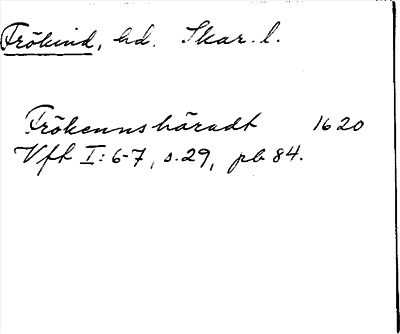 Frökind, hd. Skar. l.
Frökenns häradt 1620
Vft I: 6-7, s. 29, pl. 84.